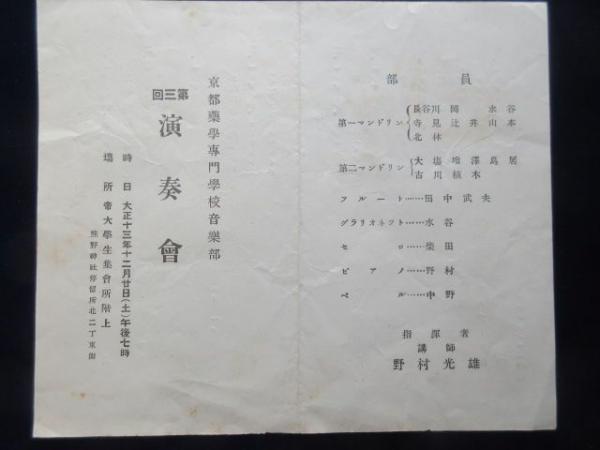 京都藥學專門學校音樂部
第三回
演奏會
時日 大正十三年十二月廿日(土)午後七時
場所 帝大學生集會所階上
熊野神社停留所北二丁東側
部員
第一マンドリン
長谷川 岡 水谷
寺見 辻井 山本
北林
第二マンドリン
大塩 増澤 鳥居
吉川 植木
フルート……田中武夫
グラリオネツト……水谷
セロ……柴田
ピアノ……野村
ベル……中野
指揮者
講師
野村光雄